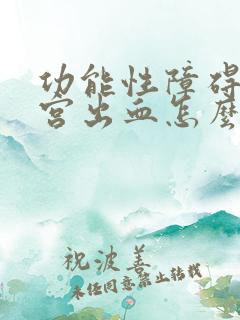 功能性障碍
宫出血怎麼
祝波善
未经同意禁止转载